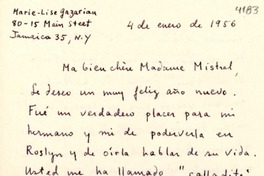 Marie-Lise Gazarian
80-15 Main Street
Jamaica 35, N.Y
4183
4 de enero de 1956
Ma bien chère Madame Mistral,
Le deseo un muy feliz año nuevo.
Fué un verdadero placer para mi
hermano y mi de poderverla en
Roslyn y de oírla hablar de su vida.
Usted me ha llamado "calladita"